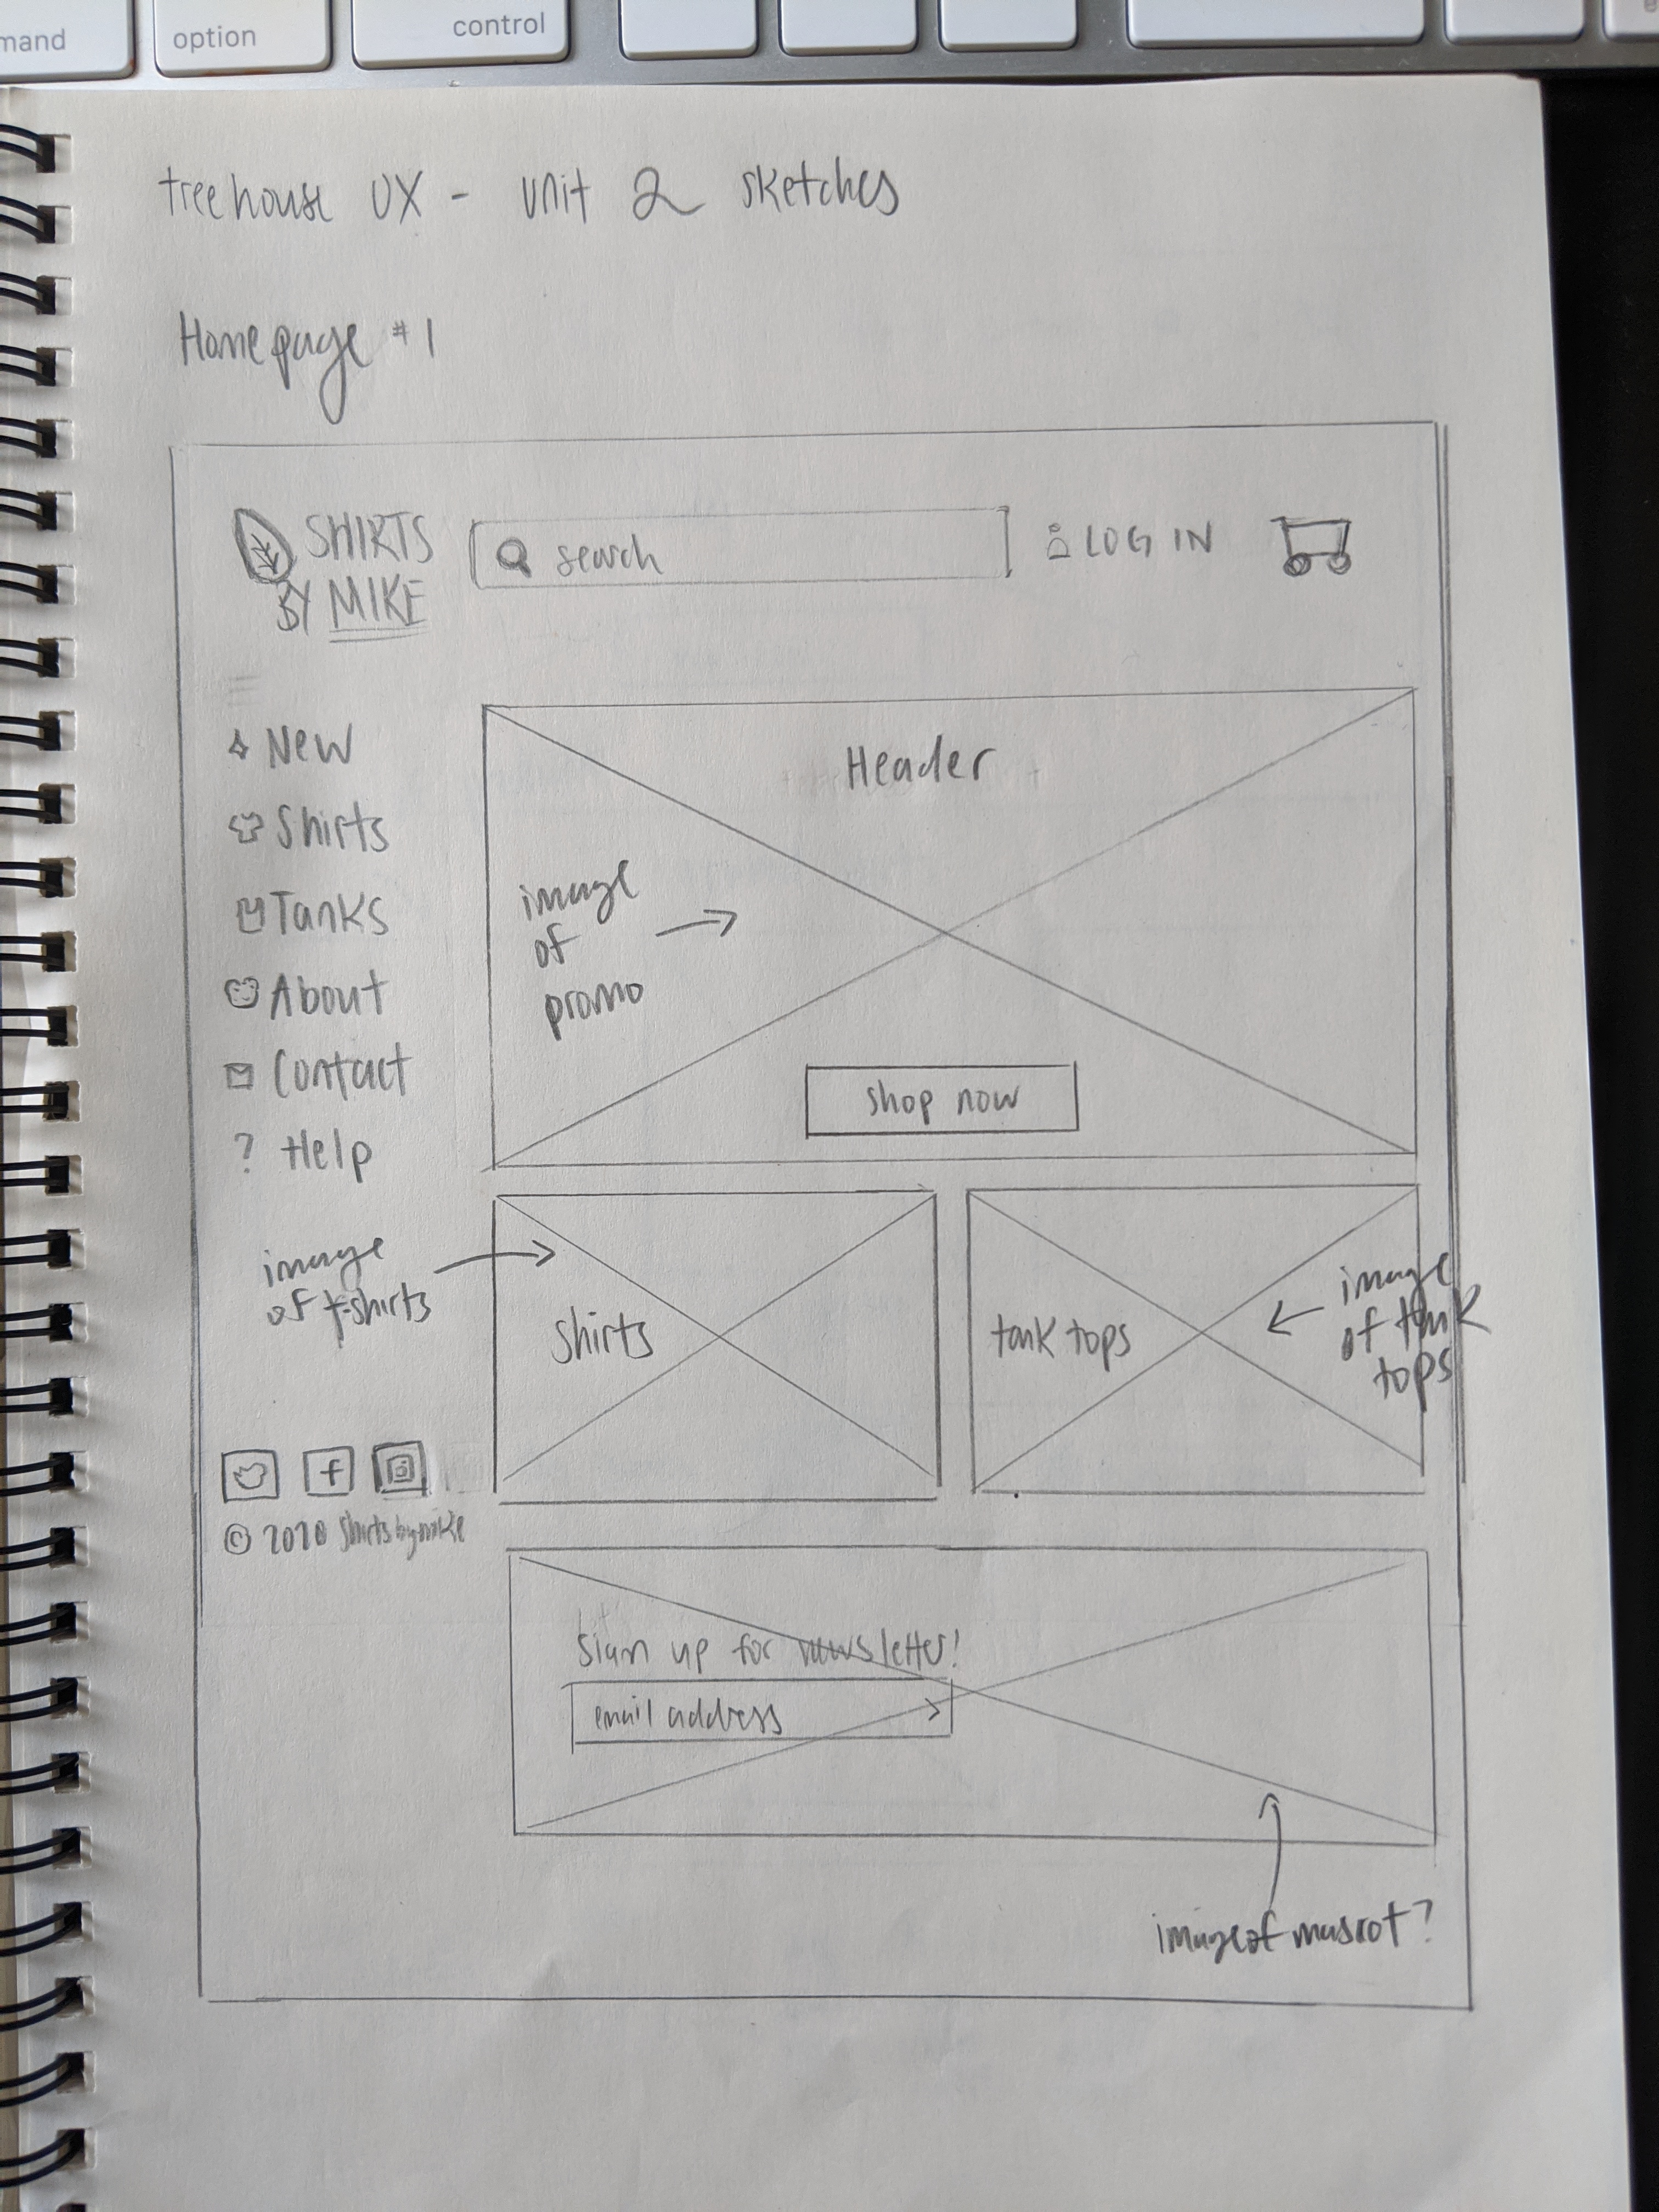 mand
option
control
treehouse UX - unit 2 sketches
Homepage #1
SHIRTS
BY MIKE
search
LOG IN
New
Shirts
Tanks
About
Contact
? Help
Header
image
of
promo
shop now
image
of t-shirts
shirts
tank tops
image
of tank
tops
f
© 2020 shirtsbymike
sign up for newsletter!
email address >
image of mascot?